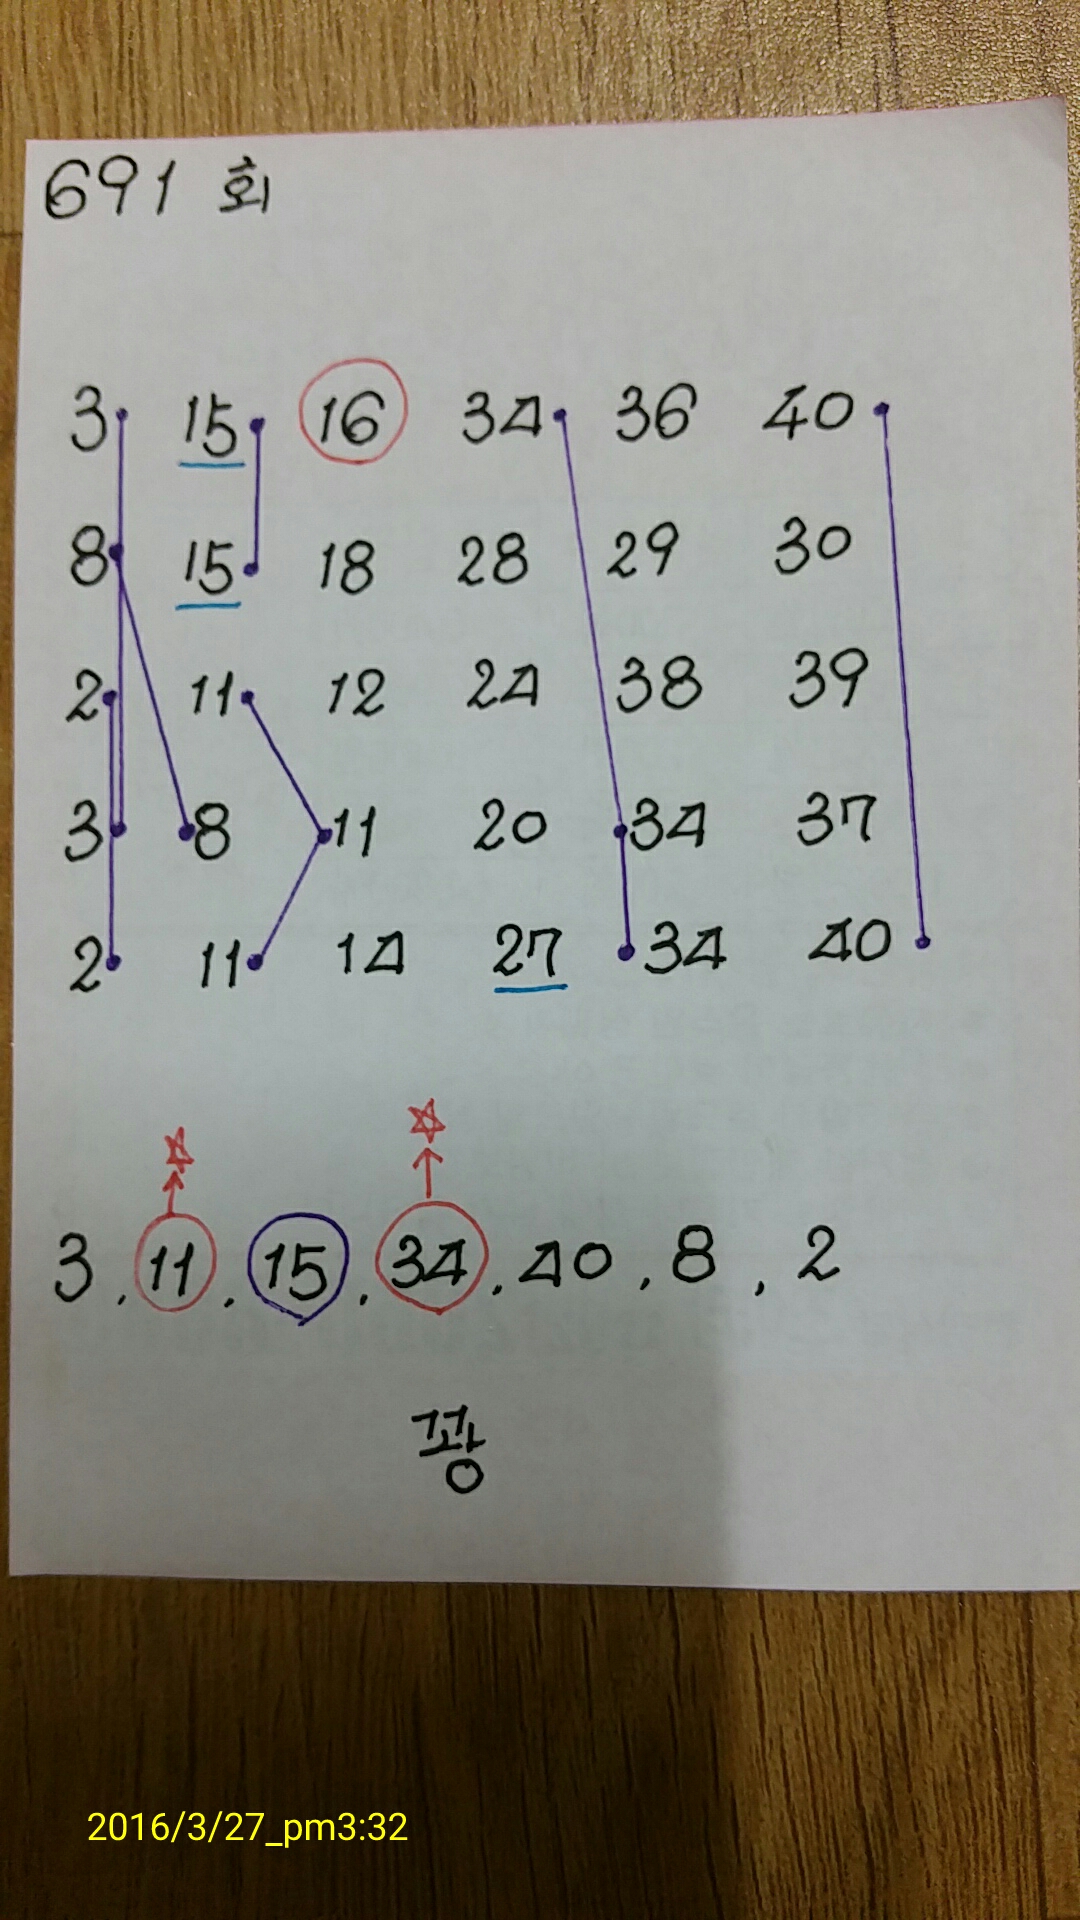 691 회
3 15 16 34 36 40
8 15 18 28 29 30
2 11 12 24 38 39
3 8 11 20 34 37
2 11 14 27 34 40
3 , 11 , 15 , 34 , 40 , 8 , 2
꽝
2016/3/27_pm3:32